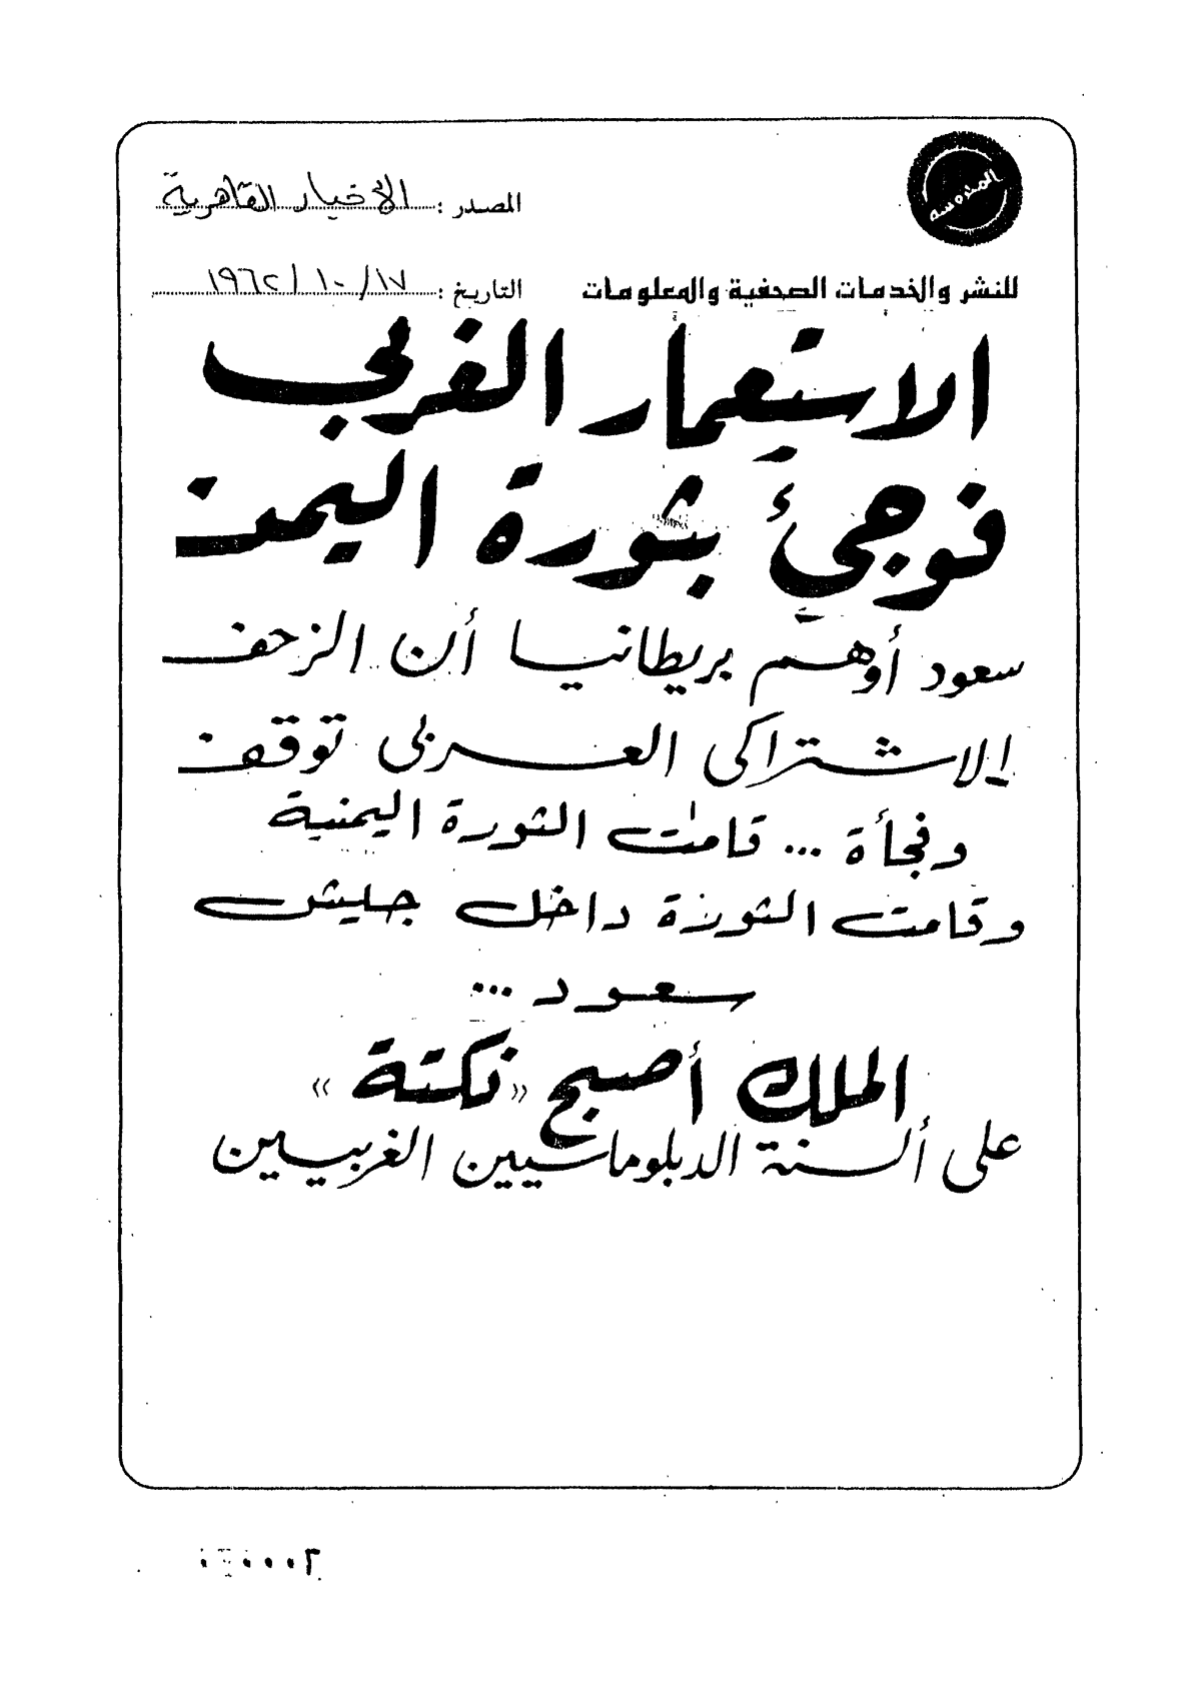 المحروسة
المصدر : الأخبار القاهرية
للنشر والخدمات الصحفية والمعلومات
التاريخ : ١٧/ ١٠/ ١٩٦٢
الاستعمار الغربى
فوجئ بثورة اليمن
سعود أوهم بريطانيا أن الزحف
الاشتراكى العربى توقف
وفجأة ... قامت الثورة اليمنية
وقامت الثورة داخل جيش
سعود ...
الملك أصبح «نكتة»
على ألسنة الدبلوماسيين الغربيين